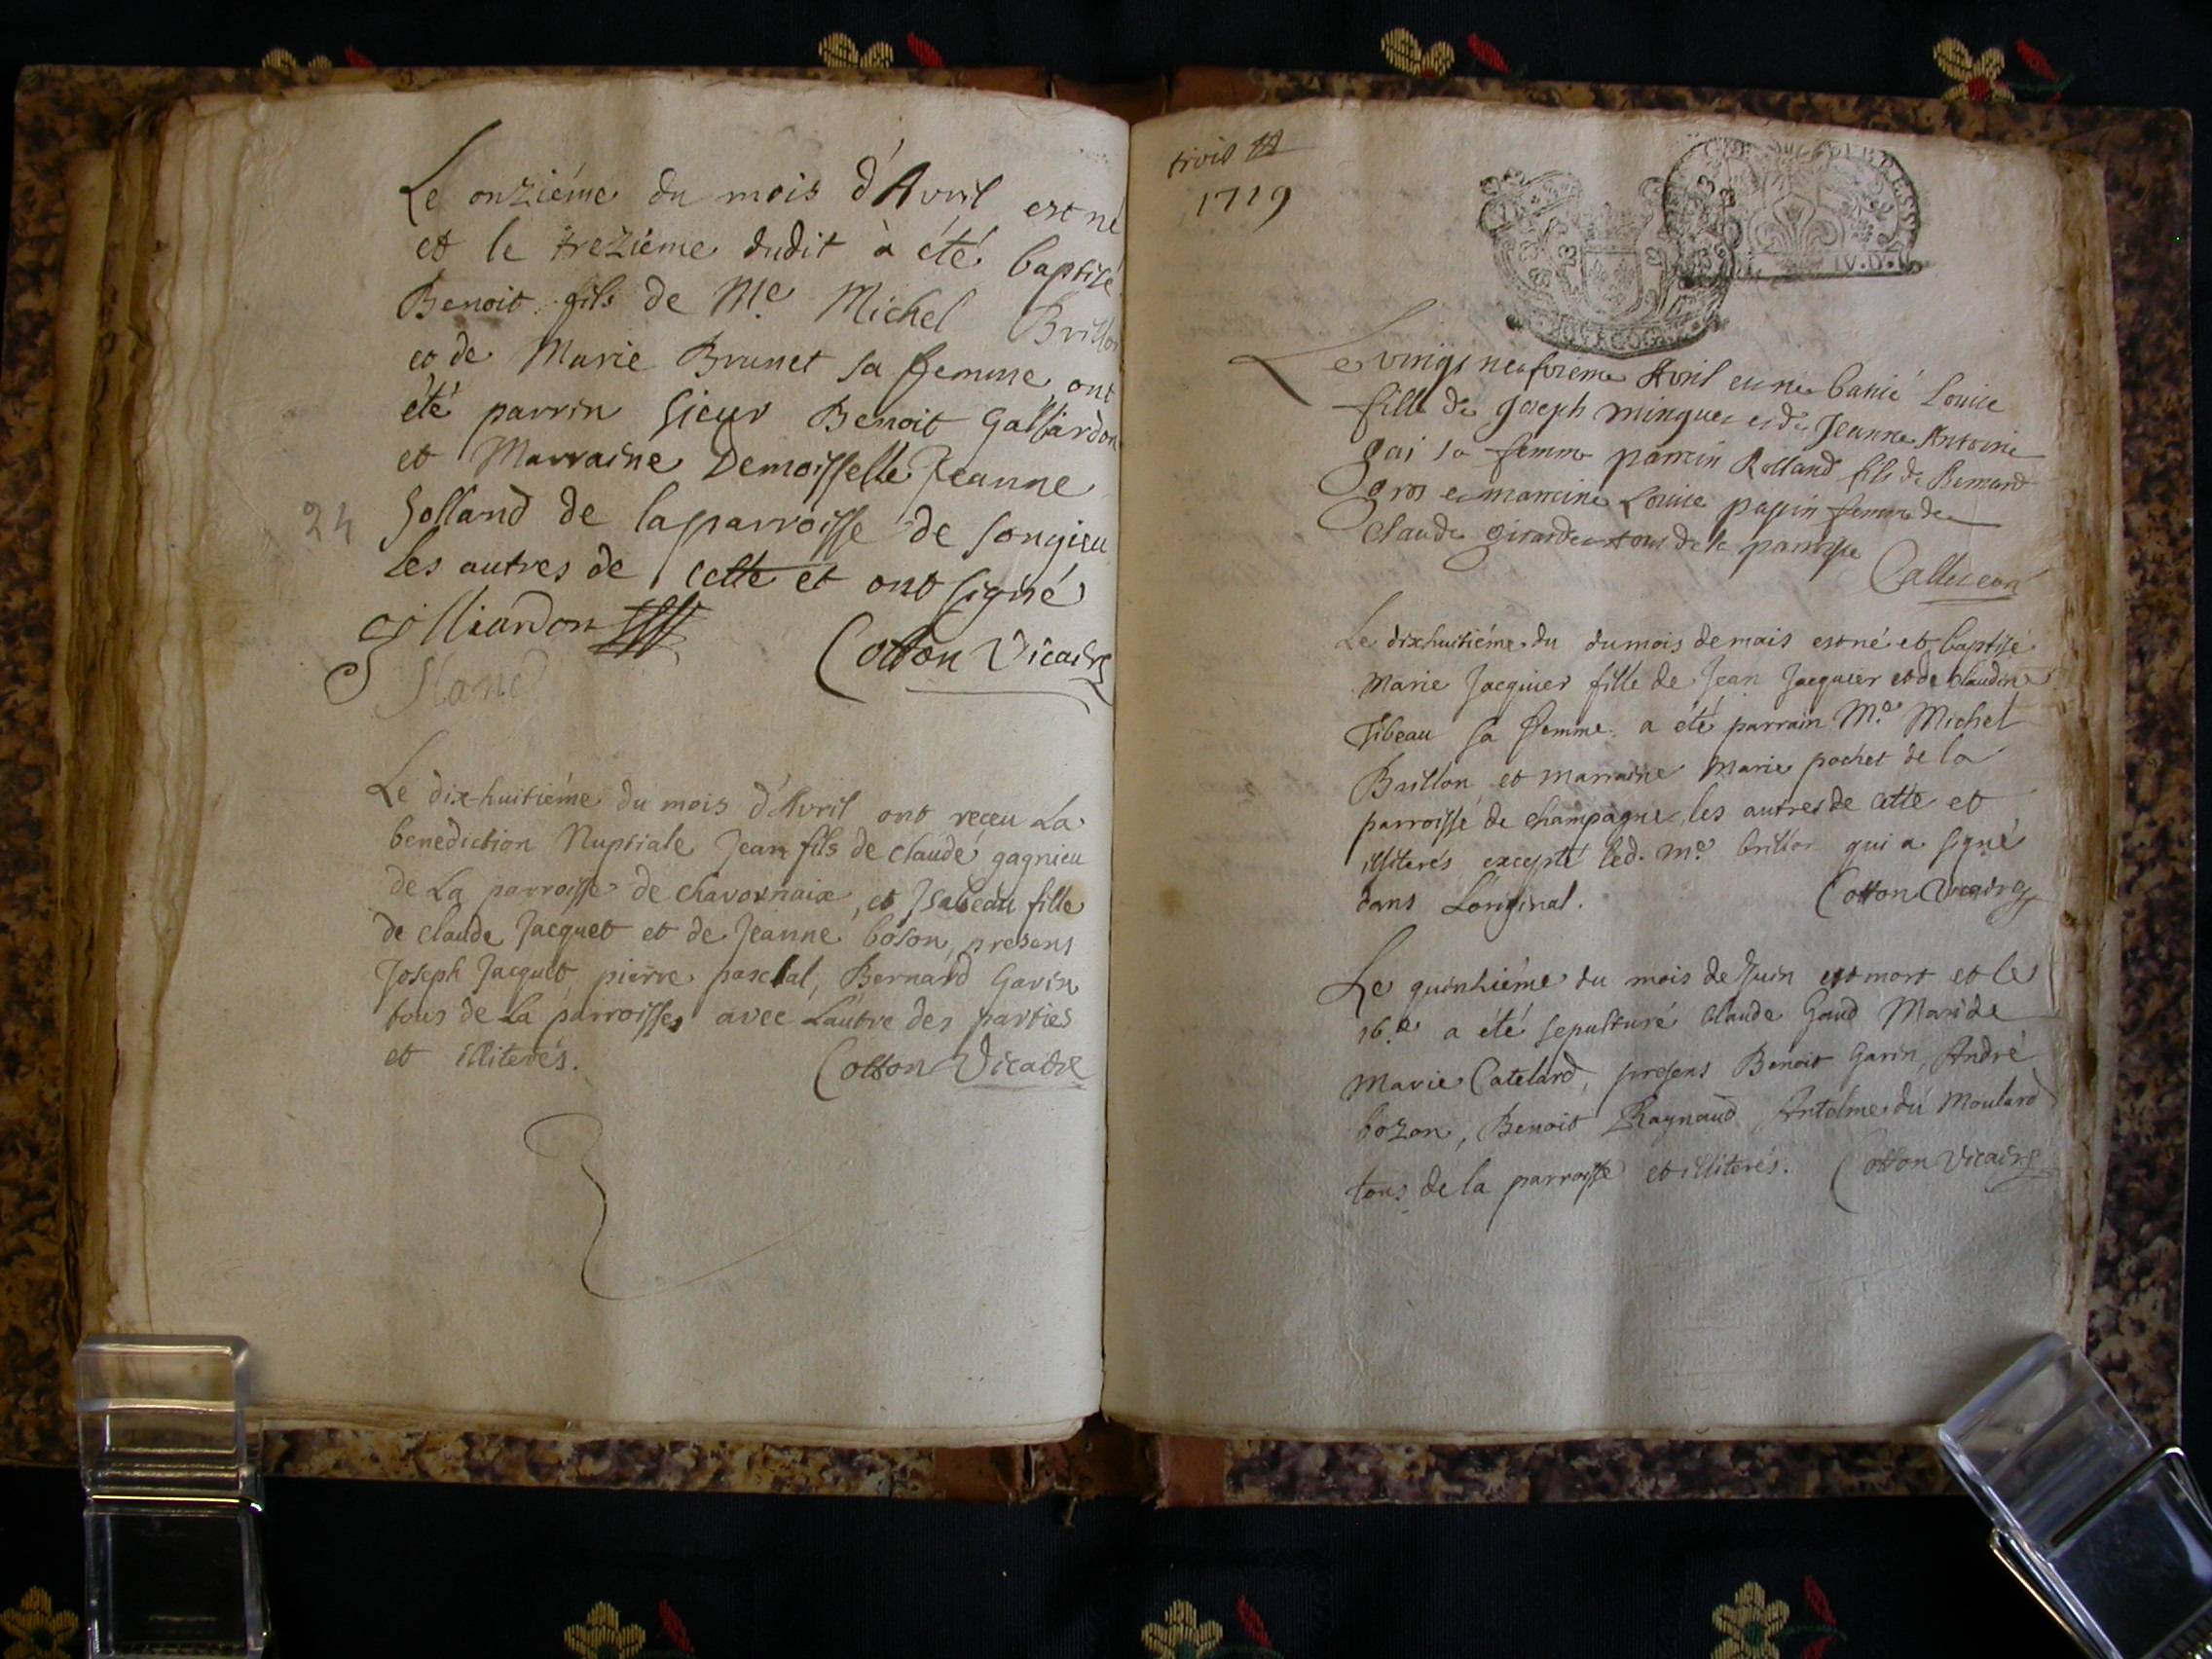 Le onziéme du mois d'Avril est né
et le treziéme dudit à été baptisé
Benoit fils de Me Michel Brillon
et de Marie Brunet sa femme, ont
été parrin Sieur Benoit Galliardon
et Marraine Demoisselle Jeanne
Solland de laparroisse de Songieu
les autres de cette et ont signé
24
Gilliardon
Cotton Vicaire
Le dix-huitiéme du mois d'Avril ont receu La
benediction Nuptiale Jean fils de claude gagnieu
de La parroisse de chavornaix, et Isabeau fille
de claude Jacquet et de Jeanne boson, presens
Joseph Jacquet, pierre paschal, Bernard Gavin
tous de La parroisse, avec L'autre des parties
et illiterés.
Cotton Vicaire
trois
1719
IV.D.
Le vingt neufvieme Avril est né batisé Louise
fille de Joseph minguet et de Jeanne Antoine
gai sa femme parrin Rolland fils de Bernard
gros et marrine Louise papin femme de
claude girardet tous de la parroisse
Le dixhuitiéme du dumois de mais est né et baptisé
Marie Jacquier fille de Jean Jacquier et de claudine
Tibeau sa femme. a été parrain Me Michel
Brillon et marraine Marie pochet de la
parroisse de champagne, les autres de cette et
illiterés excepté led. me brillon qui a signé
dans L'original.
Cotton Vicaire
Le quinhiéme du mois de Juin est mort et le
16.e a été sepulturé claude Gaud Mari de
Marie Catelard, presens Benoit Garin, André
bozon, Benoit Raynaud Antelme du Moulard
tous de la parroisse et illiterés.
Cotton Vicaire